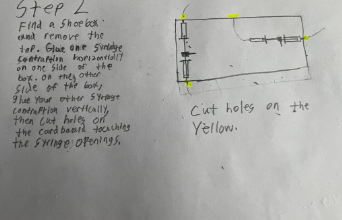 Step 2
Find a shoebox
and remove the
top. Glue one syringe
contraption horizontally
on one side of the
box. on the other
side of the box,
glue your other syringe
contraption vertically,
then cut holes on
the cardboard touching
the syringe openings.
Cut holes on the
Yellow.